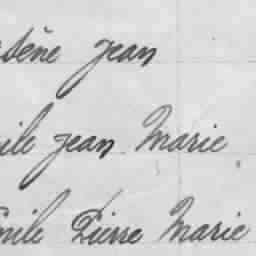 sène Jean
ile Jean Marie
mile Pierre Marie